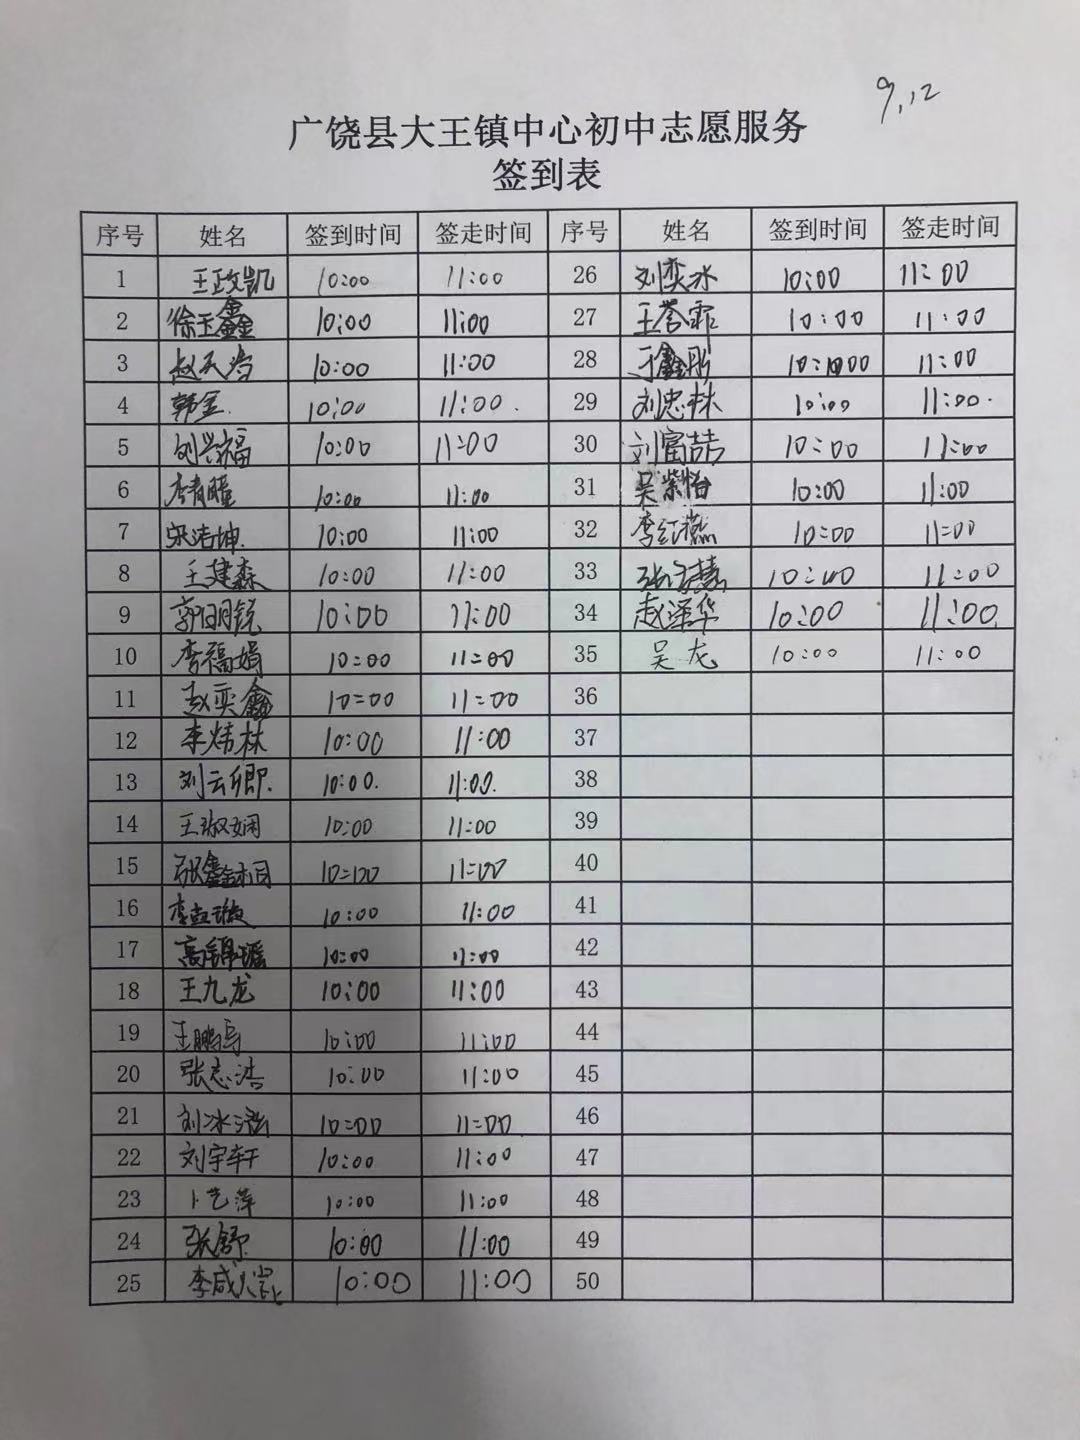 9,12
广饶县大王镇中心初中志愿服务
签到表
序号 姓名 签到时间 签走时间 序号 姓名 签到时间 签走时间
1 王政凯 10:00 11:00 26 刘奕冰 10:00 11:00
2 徐玉鑫 10:00 11:00 27 王誉霏 10:00 11:00
3 赵天浩 10:00 11:00 28 于鑫彤 10:00 11:00
4 韩金 10:00 11:00 29 刘忠林 10:00 11:00
5 刘兴福 10:00 11:00 30 刘富喆 10:00 11:00
6 10:00 11:00 31 吴紫怡 10:00 11:00
7 宋浩坤 10:00 11:00 32 李红燕 10:00 11:00
8 王建森 10:00 11:00 33 10:00 11:00
9 郭明锐 10:00 11:00 34 赵泽华 10:00 11:00
10 李福娟 10:00 11:00 35 吴龙 10:00 11:00
11 赵奕鑫 10:00 11:00 36
12 李炜林 10:00 11:00 37
13 刘云卿 10:00 11:00 38
14 王淑娴 10:00 11:00 39
15 张鑫桐 10:00 11:00 40
16 李孟璇 10:00 11:00 41
17 高锦瑶 10:00 11:00 42
18 王九龙 10:00 11:00 43
19 10:00 11:00 44
20 张志浩 10:00 11:00 45
21 刘冰涵 10:00 11:00 46
22 刘宇轩 10:00 11:00 47
23 卜艺萍 10:00 11:00 48
24 张舒 10:00 11:00 49
25 10:00 11:00 50